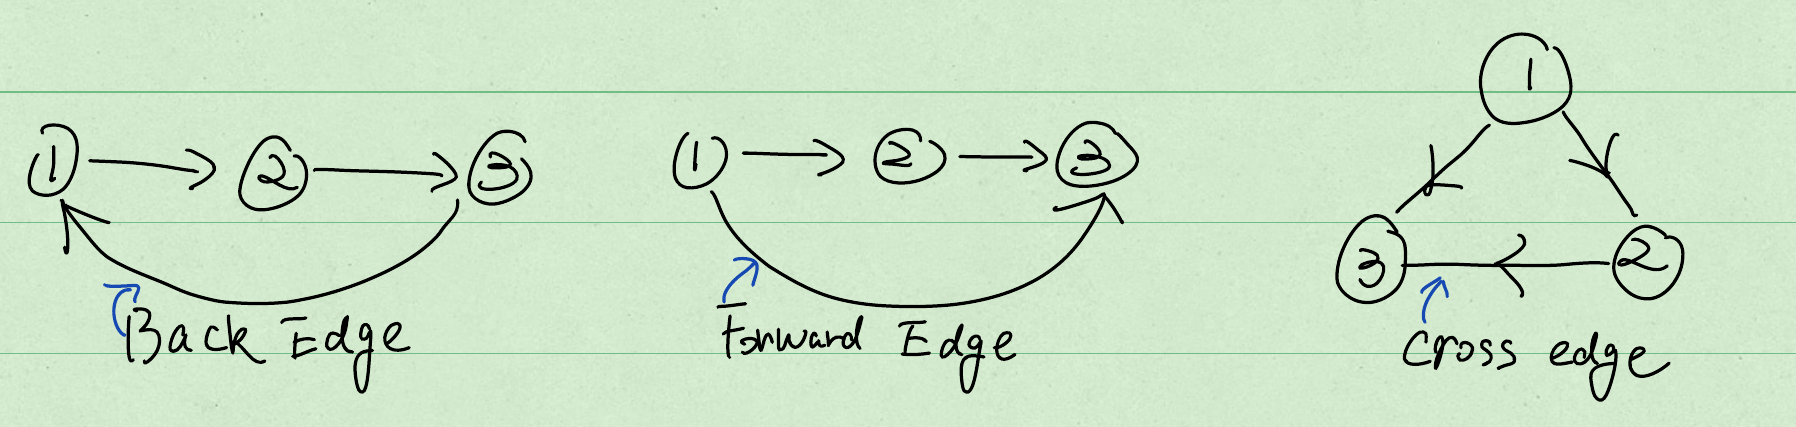 1 2 3
Back Edge
1 2 3
Forward Edge
1
3 2
Cross edge